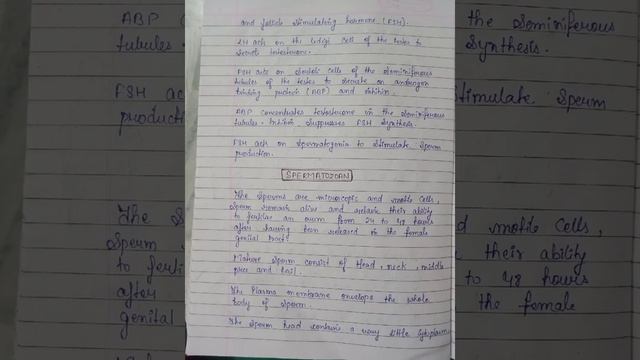 and follicle stimulating hormone (FSH).
LH acts on the Leydig cell of the testes to
secrete testosterone.
FSH acts on Sertoli cells of the Seminiferous
tubules of the testes to secrete an androgen
binding protein (ABP) and inhibin.
ABP concentrates testosterone in the Seminiferous
tubules. Inhibin suppresses FSH Synthesis.
FSH act on Spermatogonia to stimulate Sperm
production.
SPERMATOZOAN
The Sperms are microscopic and motile Cells,
Sperm remain alive and retain their ability
to fertilise an ovum from 24 to 48 hours
after having been released in the female
genital tract.
Mature Sperm consist of Head, neck, middle
piece and tail.
The Plasma membrane envelops the whole
body of Sperm.
The Sperm head contain a very little Cytoplasm